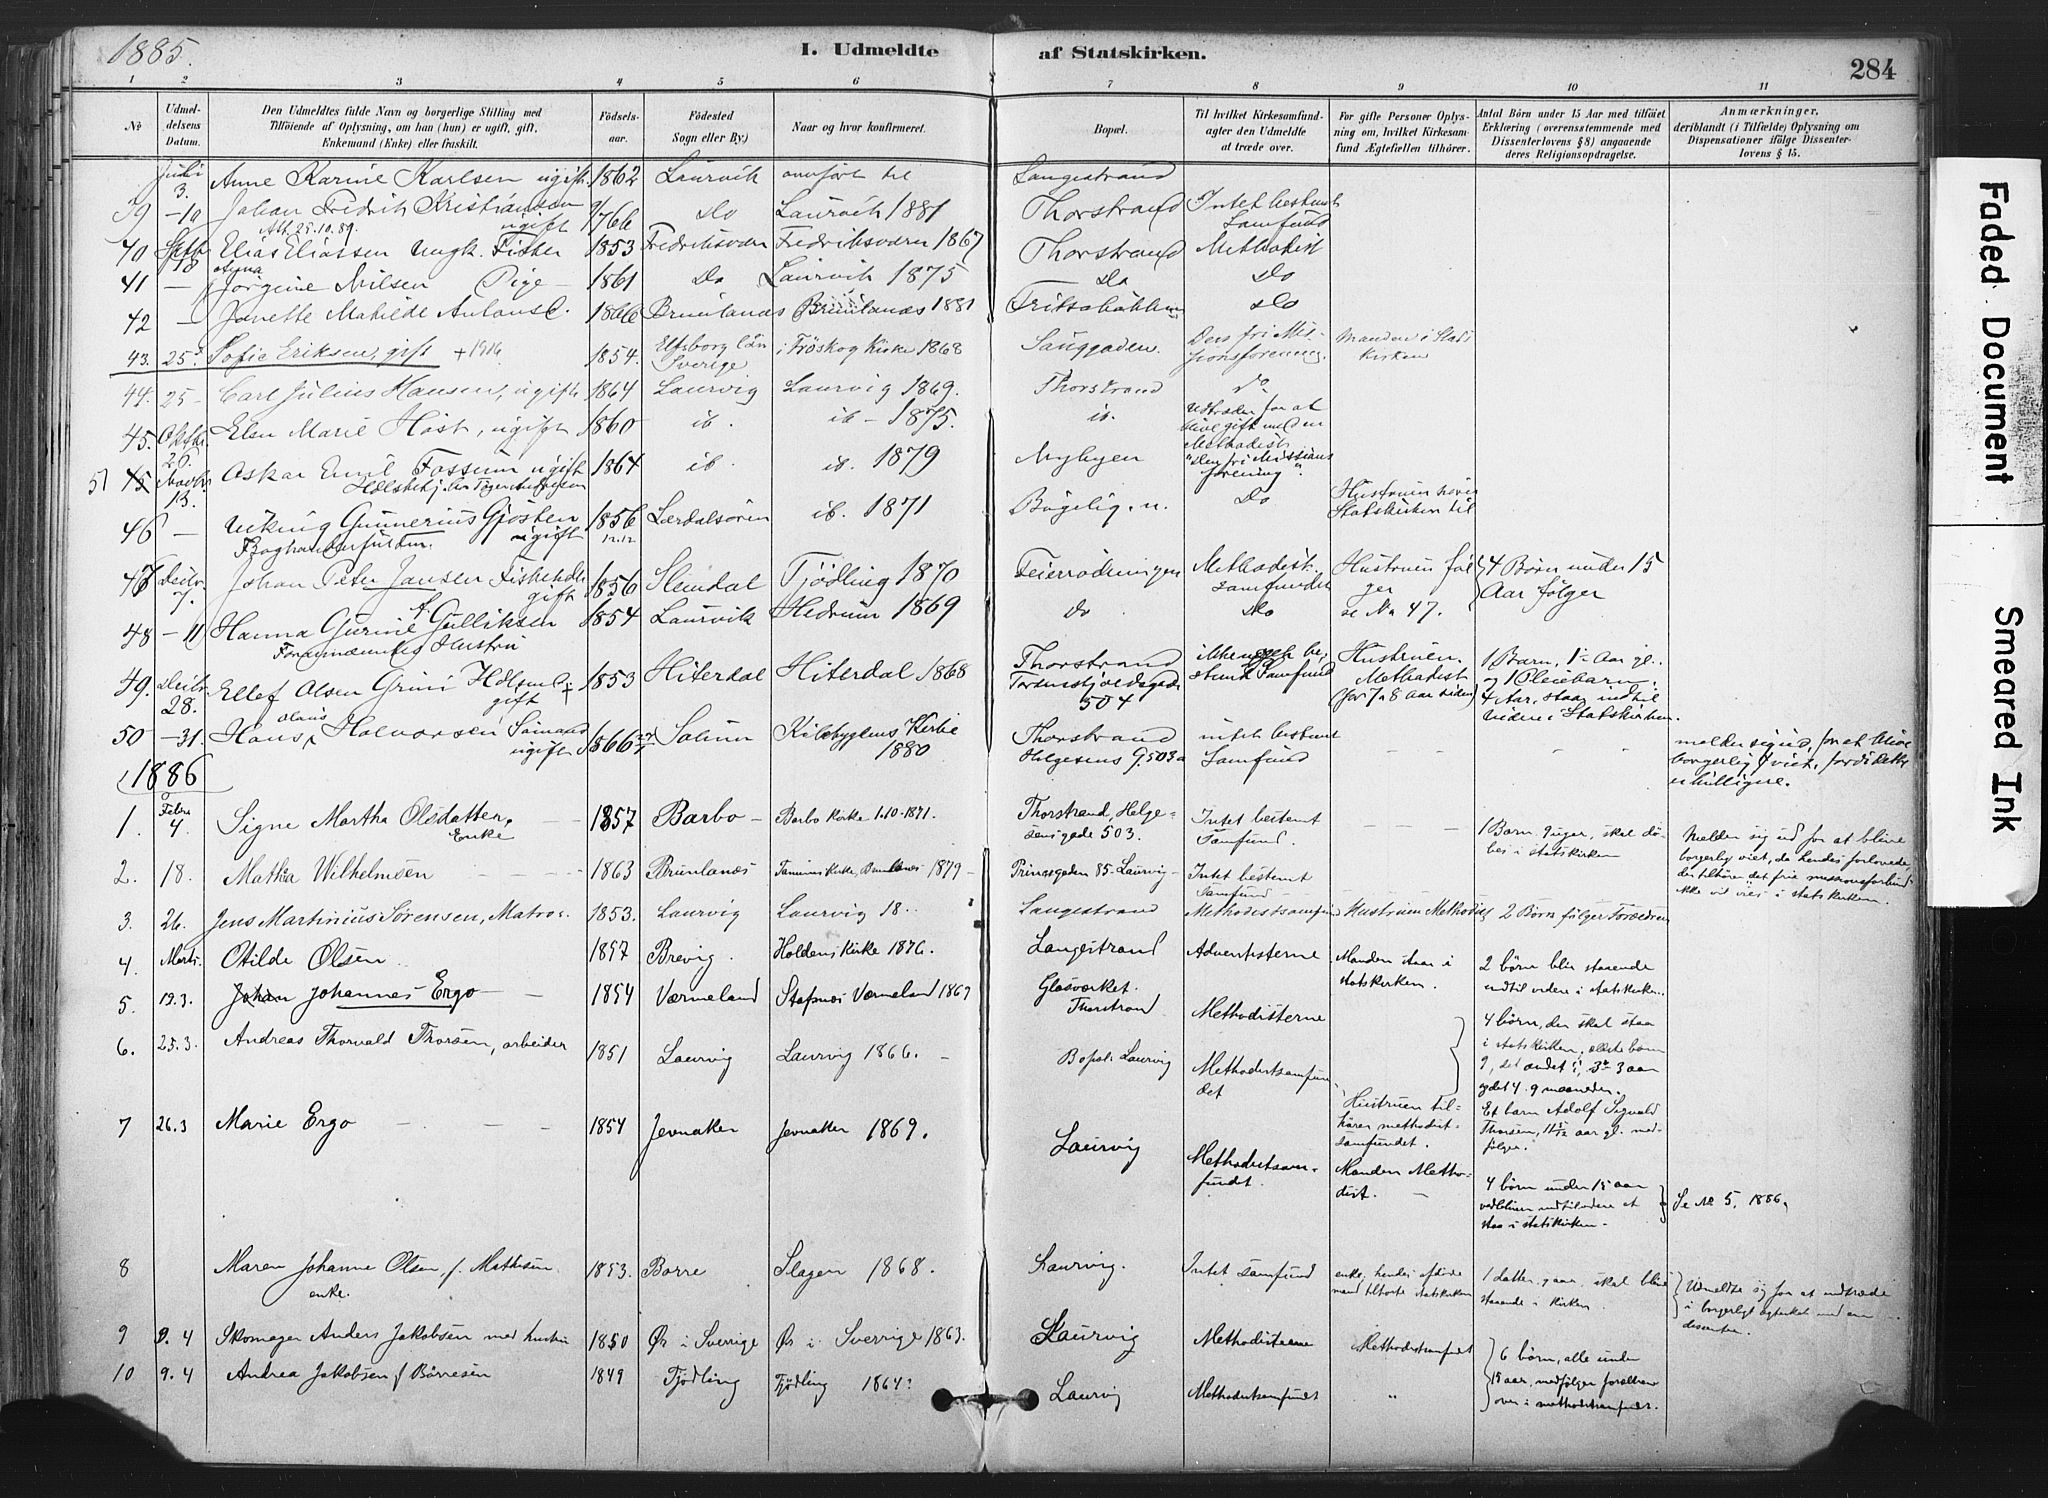 1885.
I. Udmeldte af Statskirken.
284
1 2 3 4 5 6 7 8 9 10 11
No
Udmel-
delsens
Datum.
Den Udmeldtes fulde Navn og borgerlige Stilling med
Tilføiende af Oplysning, om han (hun) er ugift, gift,
Enkemand (Enke) eller fraskilt.
Fødsels-
aar.
Fødested
Sogn eller By.)
Naar og hvor konfirmeret.
Bopæl.
Til hvilket Kirkesamfund-
agter den Udmeldte
at træde over.
For gifte Personer Oplys-
ning om, hvilket Kirkesam-
fund Ægtefællen tilhører.
Antal Børn under 15 Aar med tilføiet
Erklæring (overensstemmende med
Dissenterlovens § 8) angaaende
deres Religionsopdragelse.
Anmærkninger,
deriblandt (i Tilfælde) Oplysning om
Dispensationer ifølge Dissenter-
lovens § 15.
Juli 3. Anne Karine Karlsen ugift 1862 Laurvik anført til Langestrand
39 - 10 Johan Fredrik Kristiansen ugift 1866 Do Laurvik 1881 Thorstrand Intet bestemt Samfund
Att. 25.10.89.
40 Septb 18 Elias Eliassen Ungk. Fisker 1853 Fredriksværn Fredriksværn 1867 Thorstrand Methodist
41 - Anna Jørgine Nilsen Pige - 1861 Do Laurvik 1875 Do Do
42 - Janette Mathilde Antons D. 1866 Brunlanæs Brunlanæs 1881 Fritzøbakken Do
43. 25. Sofie Eriksen, gift +1916 1854. Elfsborg Län Sverige i Fröskog Kirke 1868 Sanggaden. Den fri Mis-
sionsforening. Manden i Stats
Kirken
44. 25- Carl Julius Hansen, ugift 1864 Laurvig Laurvig 1869. Thorstrand do
45. Oktbr. 26. Elen Marie Høst, ugift 1860 ib. ib - 1875. ib. Udtræder for at
blive gift med en
Methodist
51 45 Novbr 13. Oskar Emil Fossum ugift 1864 ib. ib. 1879 Nybyen "Den fri Missions
forening".
46 - Viking Gunnerius Gjøsten ugift 1856 12.12 Lærdalsøren ib. 1871 Bøgelig. n. Do Hustruen hører
Statskirken til
Boghandlerfuldm.
47 Decbr. 7. Johan Peter Jansen Fiskehdl. gift 1856 Slemdal Tjødling 1870 Feierrødningen Methodist.
Samfundet Hustruen føl
ger 4 Børn under 15
Aar følger
48 - 11 Hanna Gurine f. Gulliksen 1854 Laurvik Hedrum 1869 Do Do se No 47.
Forannævntes Hustru
49. Decbr. 28. Ellef Olsen Grini gift 1853 Hiterdal Hiterdal 1868 Thorstrand
Tordenskjoldsgade
504 ikke noget be-
stemt Samfund Hustruen.
Methodist
(for 7 a 8 aar siden) 1 Barn, 1½ Aar gl.
og 1 Pleiebarn.
4 Aar, staar indtil
videre i Statskirken.
50 - 31. Hans Olaus Halvorsen Sømand ugift 1866 Solum Kilebygdens Kirke
1880 Thorstrand
Helgesens G 503a intet bestemt
Samfund - - - - melder sig ud, for at blive
borgerlig viet, fordi dette
er billigere.
1886
1. Febr. 4. Signe Martha Olsdatter, Enke 1857 Barbo - Barbo Kirke 1.10-1871. Thorstrand, Helge-
sensgade 503. Intet bestemt
Samfund. - - - 1 Barn, 9 uger, skal dø-
bes i statskirken Melder sig ud for at blive
borgerlig viet, da hendes forlovede,
der tilhører det frie missionsforbund
ikke vil vies i statskirken.
2. 18. Mathia Wilhelmsen - - - 1863 Brunlanæs Tanums Kirke, Brunlanæs 1879 - Prinsegaden 85. Laurvig - Intet bestemt
Samfund -
3. 26. Jens Martinius Sørensen, Matros. 1853. Laurvig Laurvig 18.. Langestrand Methodistsamfund Hustruen Methodist 2 Børn følger Forældrene
4. Marts. Otilde Olsen 1857 Brevig. Holdens Kirke 1876. Langestrand Adventisterne Manden staar i
statskirken. 2 børn blir staaende
indtil videre i statskirken.
5. 19.3. Johan Johannes Ergo - - 1854 Værmeland Stafnæs Værmeland 1869 Glasværket.
Thorstrand Methodisterne 4 børn, der skal staa
i statskirken, ældste barn
9, det andet 5, 3de 3 aar
og det 4. 9 maaneder.
6. 25.3. Andreas Thorvald Thorsen, arbeider 1851 Laurvig Laurvig 1866. - Bopæl: Laurvig Methodistsamfun
det Hustruen til-
hører methodist-
samfundet. Et barn Adolf Sigvald
Thorsen, 11 5/12 aar gl. med-
følger.
7 26.3 Marie Ergo - - - 1854 Jevnaker Jevnaker 1869. Laurvig Methodistsam-
fundet. Manden Metho-
dist. - 4 børn under 15 aar
vedbliver indtil videre at
staa i statskirken. - Se No 5, 1886.
8 Maren Johanne Olsen, f. Mathisen
enke. 1853. Borre Slagen 1868. Laurvig. Intet samfund enke; hendes afdøde
mand tilhørte statskirken 1 datter, 9 aar, skal blive
staaende i kirken Udmeldte sig for at indtræde
i borgerligt ægteskab med en
dissenter.
9 9.4 Skomager Anders Jakobsen med hustru 1850 Ør i Sverrige Ør i Sverrige 1863. Laurvig Methodisterne Methodistsamfundet 6 børn, alle under
15 aar, medfølger forældrene
over i methodistsamfundet.
10 9.4 Andrea Jakobsen f Børresen 1849 Tjødling Tjødling 1864? Laurvig Methodistsamfundet "
Faded Document
Smeared Ink